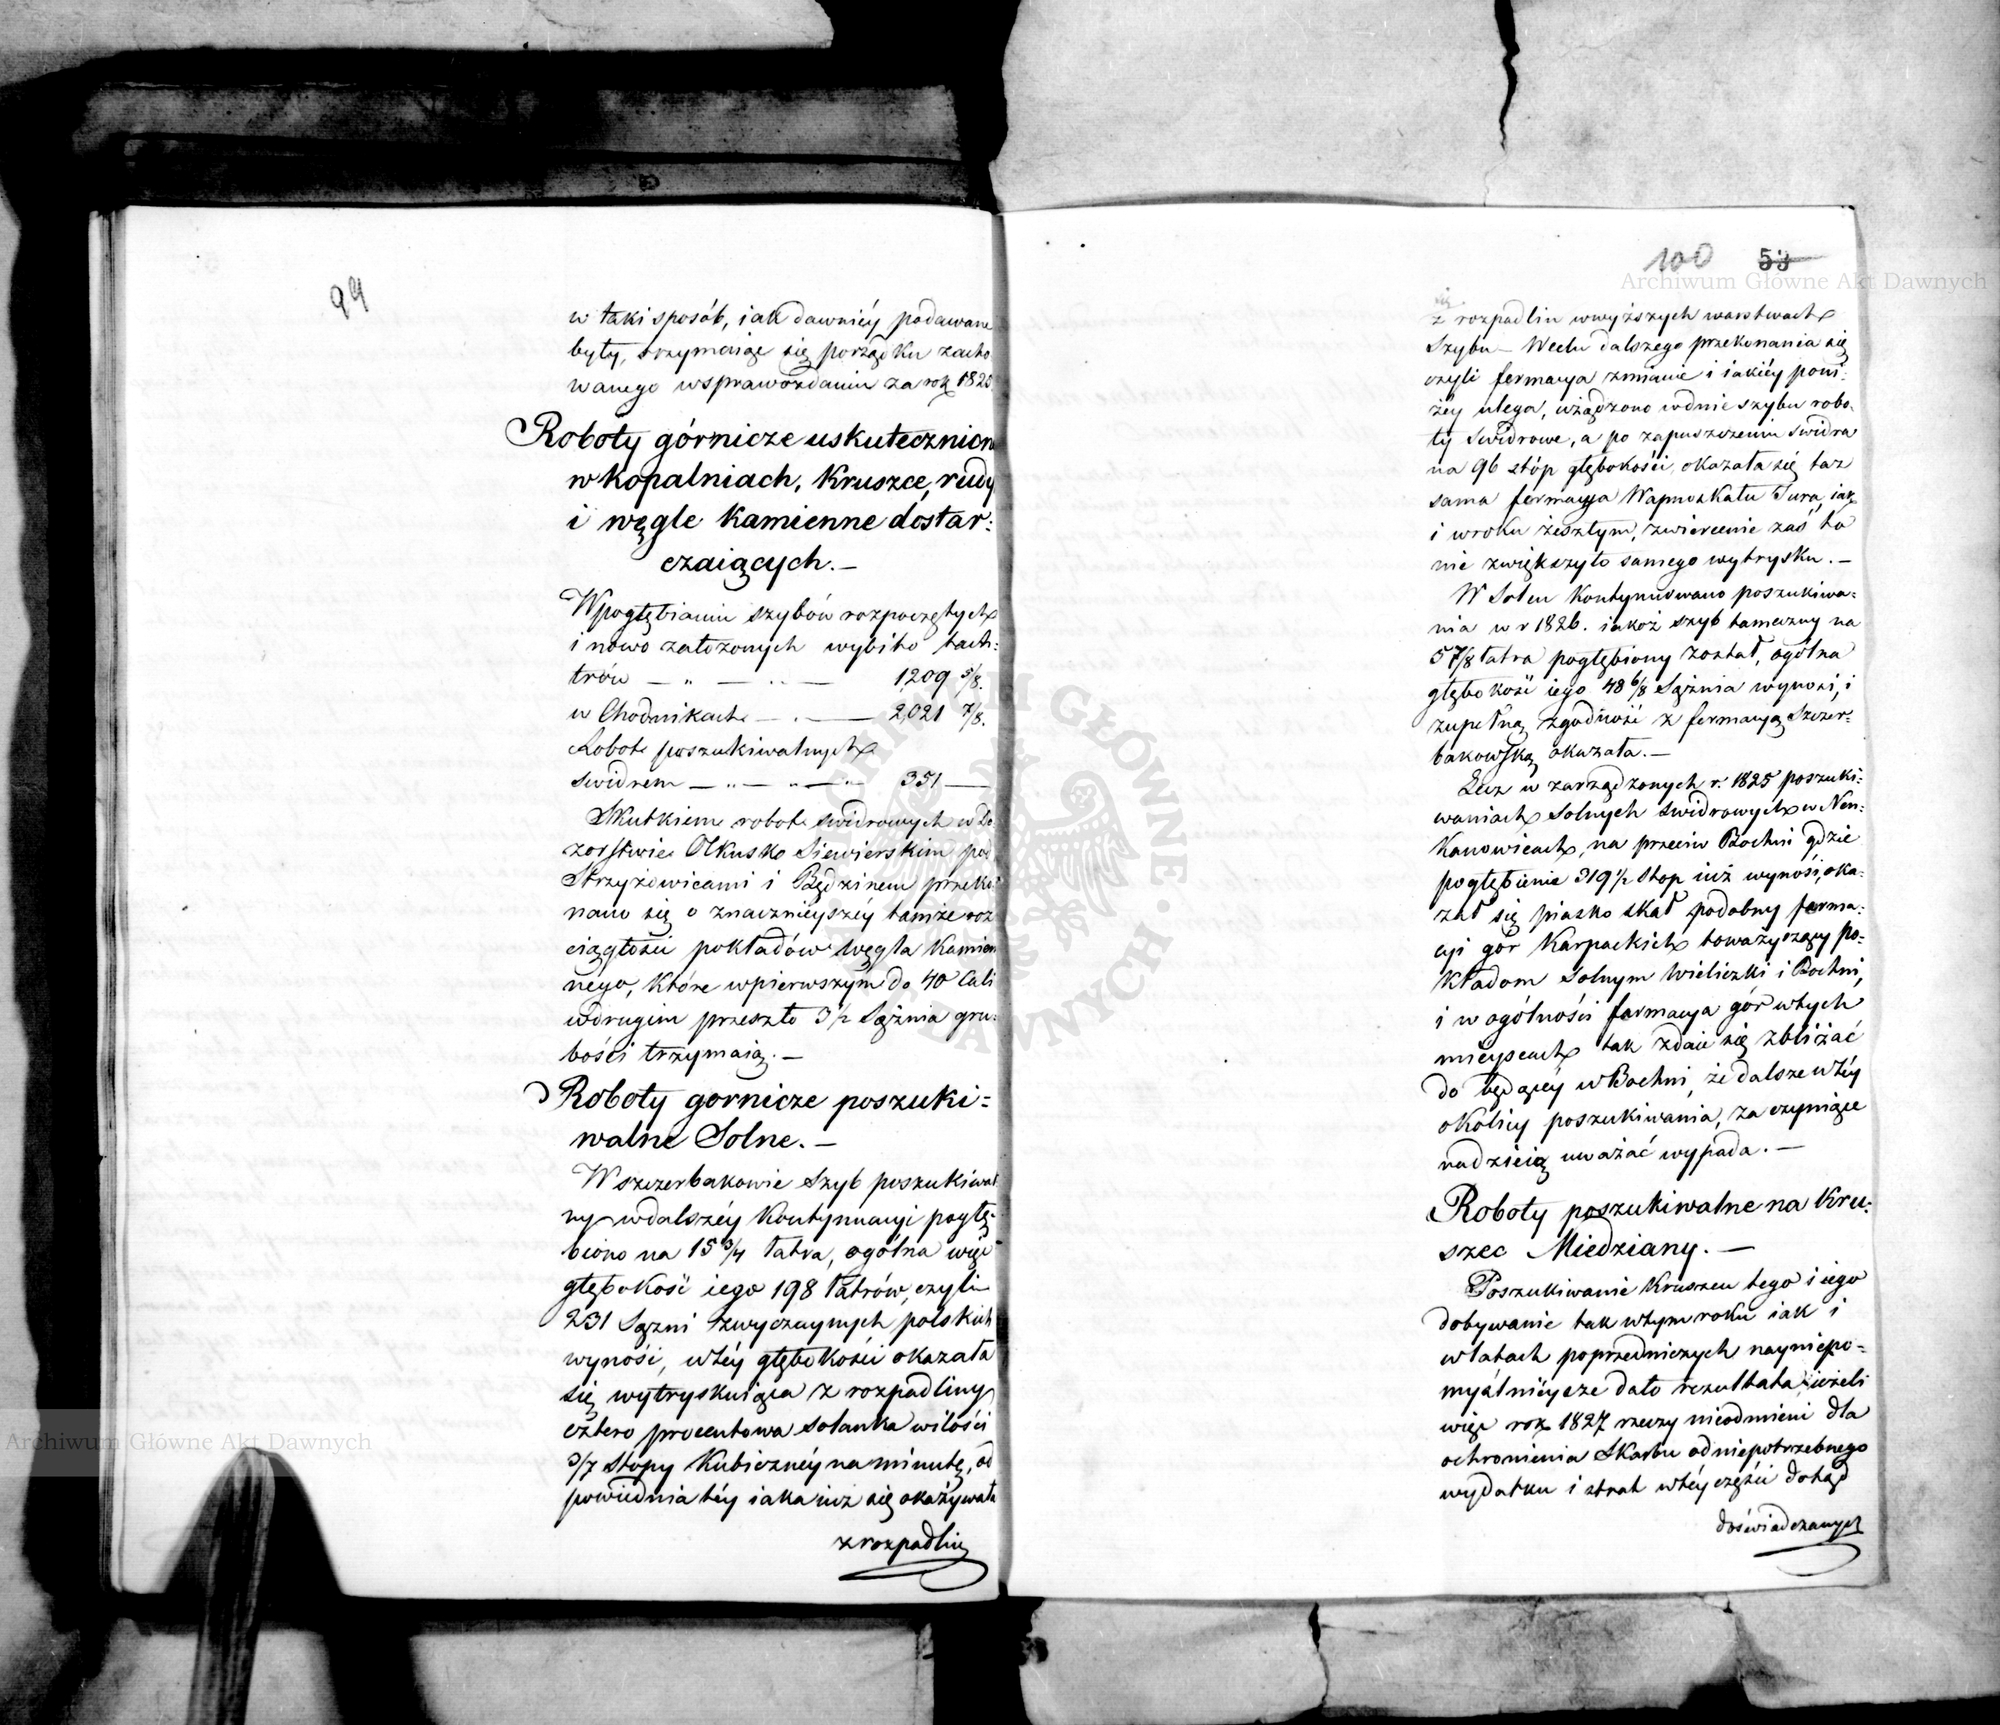 99
w taki sposób, iak dawniéy podawane
były, trzymaiąc się porządku zacho
wanego w sprawozdaniu za rok 1825
Roboty górnicze uskutecznion
w kopalniach, Kruszce, rudy
i węgle kamienne dostar:
czaiących. —
W pogłębianiu szybów rozpoczętych
i nowo założonych wybito łach:
trów — " — " — 1,209 5/8.
w Chodnikach — . — 2,021 7/8.
Robot poszukiwalnych
świdrem — " — " — " 351 —
Skutkiem robot świdrowych w Do
zorstwie Olkusko Siewierskim pod
Strzyżowicami i Będzinem przeko
nano się o znacznieyszéy tamże roz
ciągłości pokładów węgla Kamien
nego, które w pierwszym do 40 Cali
w drugim przeszło 3 1/2 Sążnia gru:
bości trzymaią. —
Roboty gornicze poszuki=
walne Solne. —
W Szczerbakowie Szyb poszukiwal
ny w dalszéy Kontynuacyi pogłę=
biono na 15 3/4 łatra, ogólna więc
głębokość iego 198 łatrów, czyli
231 Sążni zwyczaynych polskich
wynosi, w téy głębokości okazała
się wytryskuiąca z rozpadliny
cztero procentowa solanka w ilości
3/7 Stopy Kubiczney na minutę, od
powiednia téy iaka iuż się okazywała
z rozpadlin
100 53
z rozpadlin w wyższych warstwach
Szybu — W celu dalszego przekonania się
czyli formacya zmianie i iakiéy poni:
żéy ulega, urządzono w dnie szybu robo:
ty świdrowe, a po zapuszczeniu świdra
na 96 stóp głębokości, okazała się taż
sama formacya Wapna z Kału Jura, iak
i w roku zeszłym, zwiercenie zaś to
nie zwiększyło samego wytrysku. —
W Solcu Kontynuowano poszukiwa=
nia w r 1826. iakoż szyb tameczny na
5 7/8 łatra pogłębiony został, ogólna
głębokość iego 48 6/8 Sążnia wynosi, i
zupełną zgodność z formacyą Szczer=
bakowską okazała. —
Lecz w zarządzonych r. 1825 poszuki=
waniach Solnych świdrowych w Nen:
Kanowicach, na przeciw Bochni gdzie
pogłębienie 319 1/2 Stop iuż wynosi, oka=
zał się piasko skał podobny forma=
cyi gór Karpackich towarzyszący po=
kładom Solnym Wieliczki i Bochni,
i w ogólności formacya gór w tych
mieyscach tak zdaie się zbliżać
do będącéy w Bochni, że dalsze w téy
okolicy poszukiwania, za czyniące
nadzieią uważać wypada. —
Roboty poszukiwalne na Kru=
szec Miedziany. —
Poszukiwanie Kruszcu tego i iego
dobywanie tak w tym roku iak i
w latach poprzedniczych nayniepo=
myślnieysze dało rezultata, ieżeli
więc rok 1827 rzeczy nieodmieni dla
ochronienia Skarbu od niepotrzebnego
wydatku i strat w téy części dotąd
doświadczanych
Archiwum Główne Akt Dawnych
Archiwum Główne Akt Dawnych